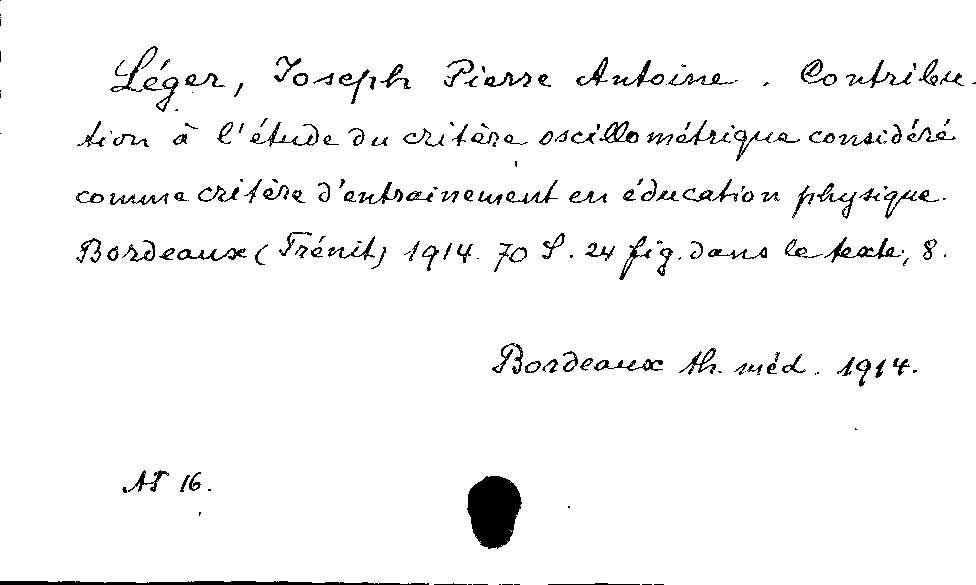 Léger, Joseph Pierre Antoine. Contribu-
tion à l'étude du critère oscillométrique considéré
comme critère d'entrainement en éducation physique.
Bordeaux (Trénit) 1914. 70 S. 24 fig. dans le texte, 8.
Bordeaux th. méd. 1914.
AT 16.